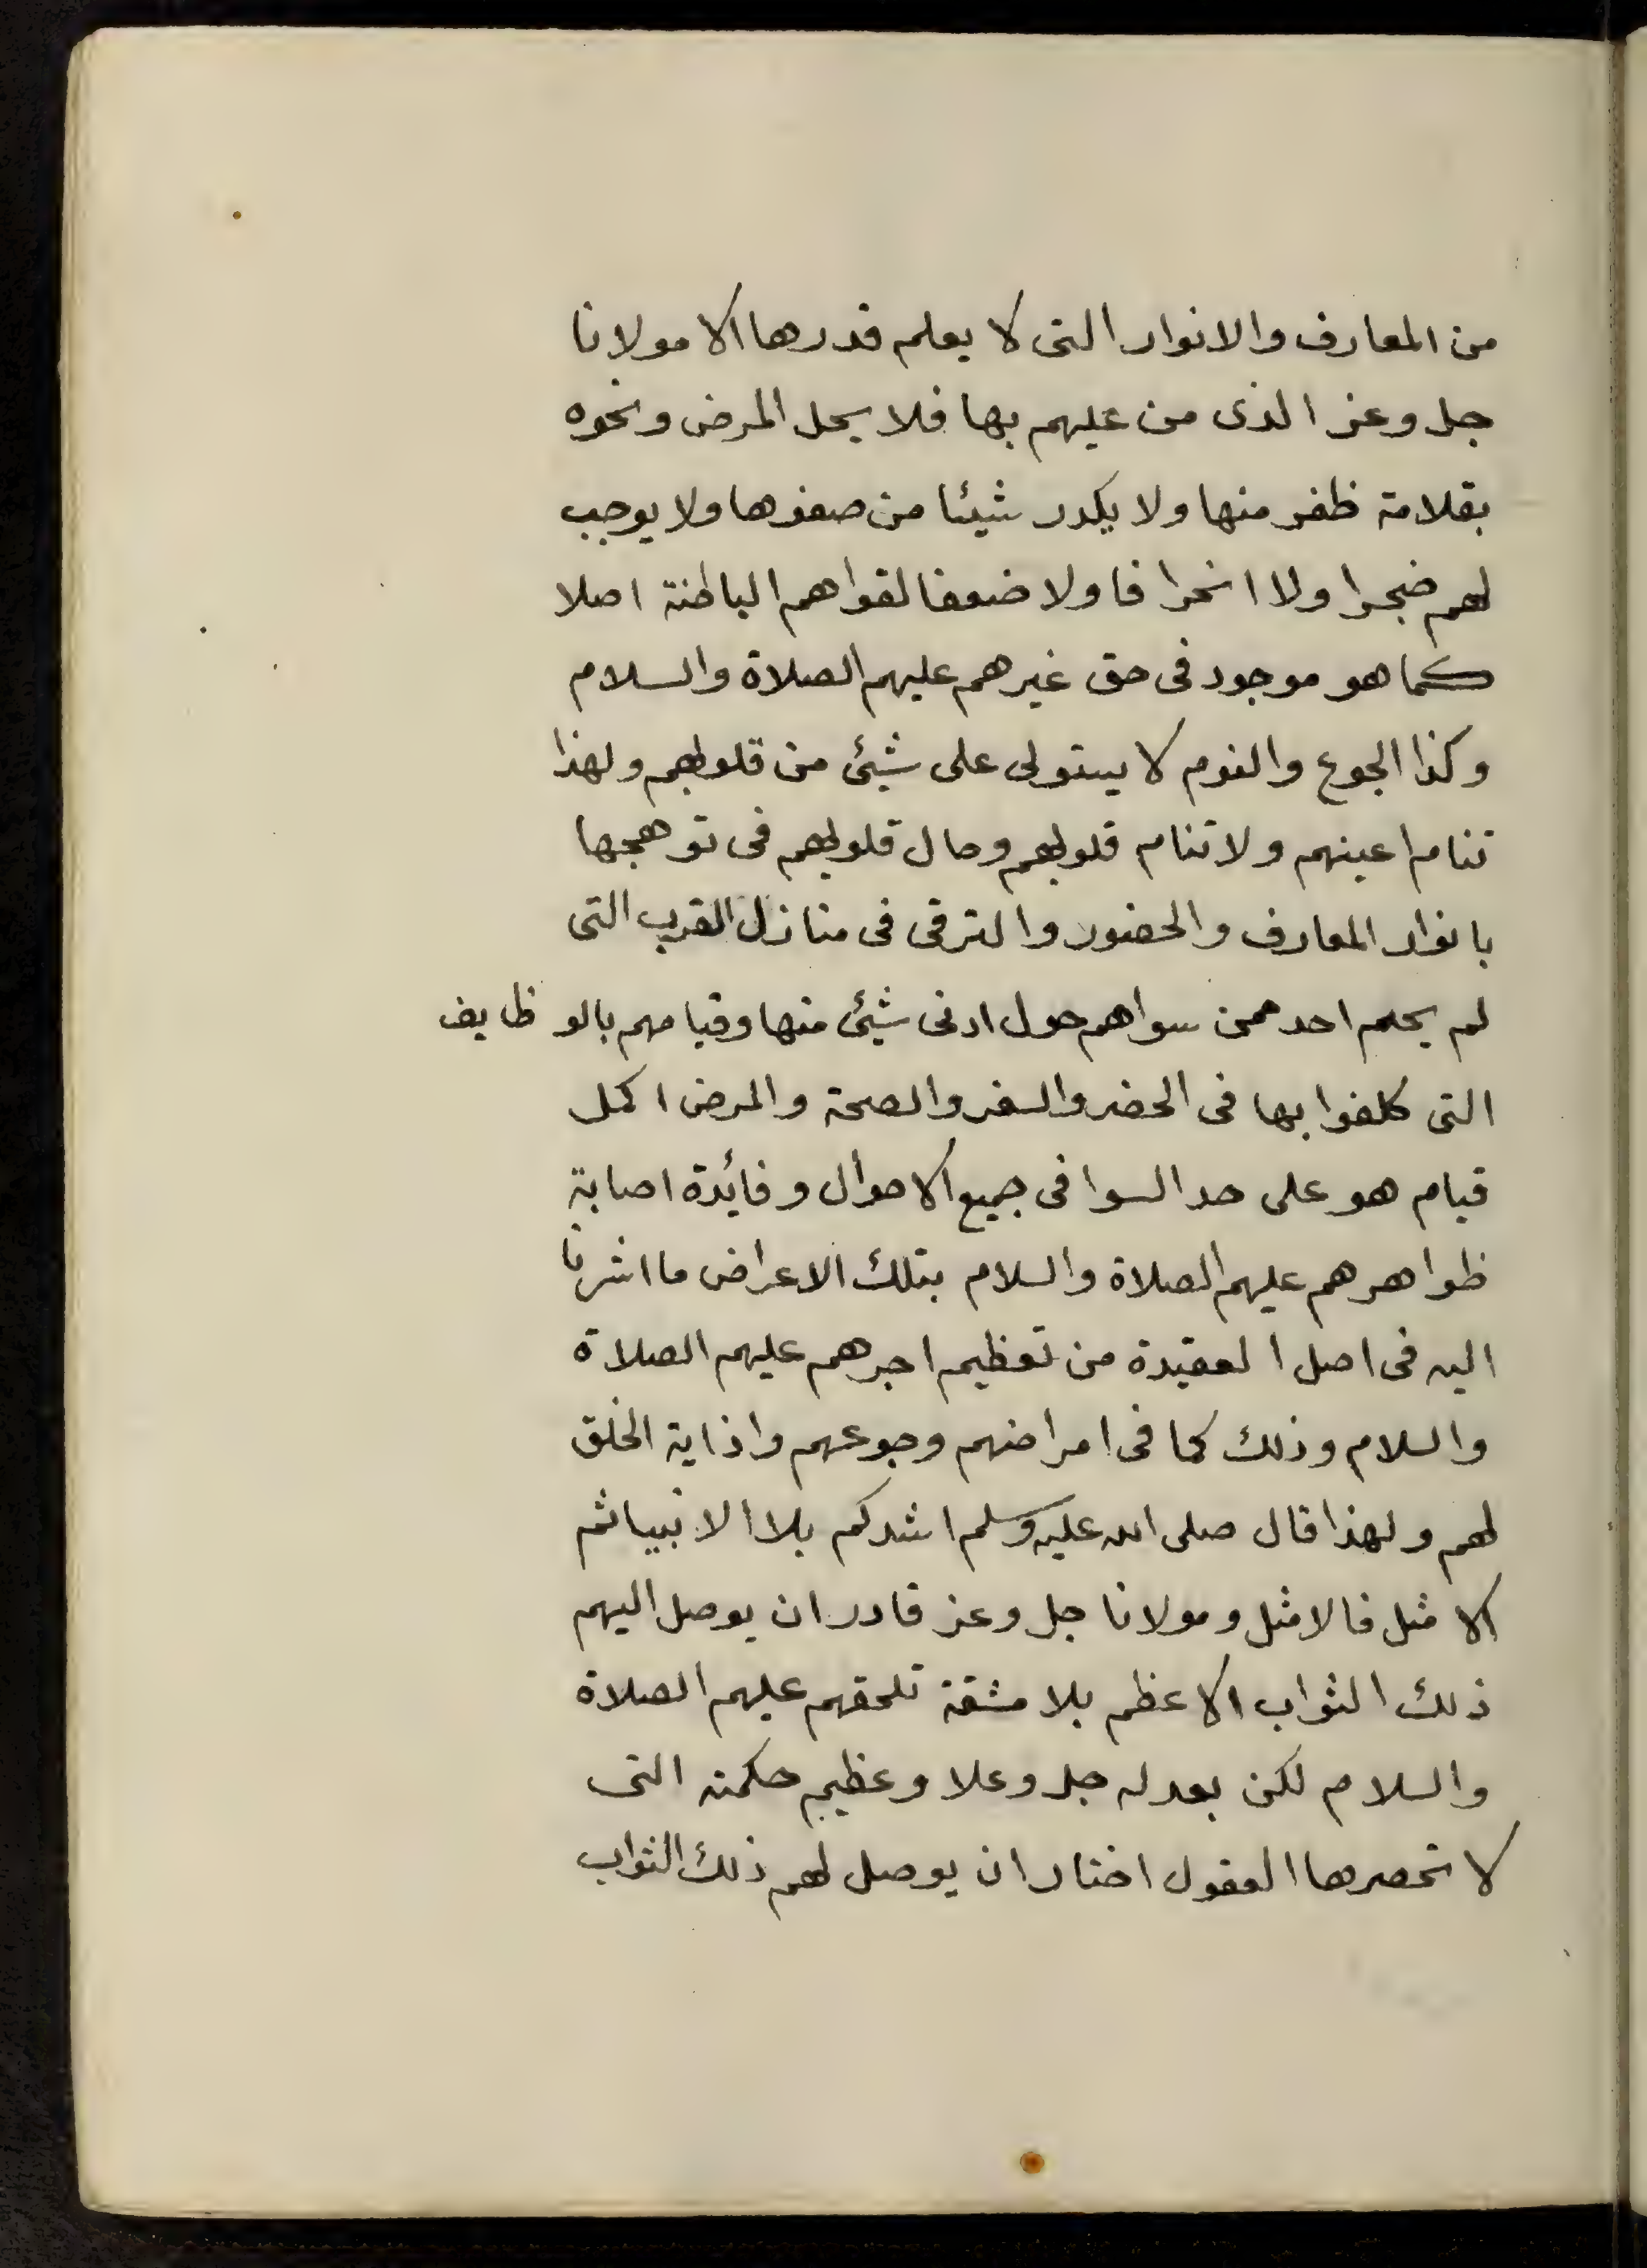 من المعارف والانوار التى لا يعلم قدرها الا مولانا
جل وعز الذى من عليهم بها فلا يحل المرض ونحوه
بقلامة ظفر منها ولا يكدر شيئا من صفوها ولا يوجب
لهم ضجرا ولا انحرافا ولا ضعفا لقواهم الباطنة اصلا
كما هو موجود فى حق غيرهم عليهم الصلاة والسلام
وكذا الجوع والنوم لا يستولى على شيئ من قلوبهم ولهذا
تنام اعينهم ولا تنام قلوبهم وحال قلوبهم فى توهجها
بانوار المعارف والحضور والترقى فى منازل القرب التى
لم يحم احد ممن سواهم حول ادنى شيئ منها وقيامهم بالوظايف
التى كلفوا بها فى الحضر والسفر والصحة والمرض اكمل
قيام هو على حد السوا فى جميع الاحوال وفائدة اصابة
ظواهرهم عليهم الصلاة والسلام بتلك الاعراض ما اشرنا
اليه فى اصل العقيدة من تعظيم اجرهم عليهم الصلاة
والسلام وذلك كما فى امراضهم وجوعهم واذاية الخلق
لهم ولهذا قال صلى الله عليه وسلم اشدكم بلا الانبيا ثم
الامثل فالامثل ومولانا جل وعز قادر ان يوصل اليهم
ذلك الثواب الاعظم بلا مشقة تلحقهم عليهم الصلاة
والسلام لكن بعدله جل وعلا وعظيم حكمته التى
لا تحصرها العقول اختار ان يوصل لهم ذلك الثواب